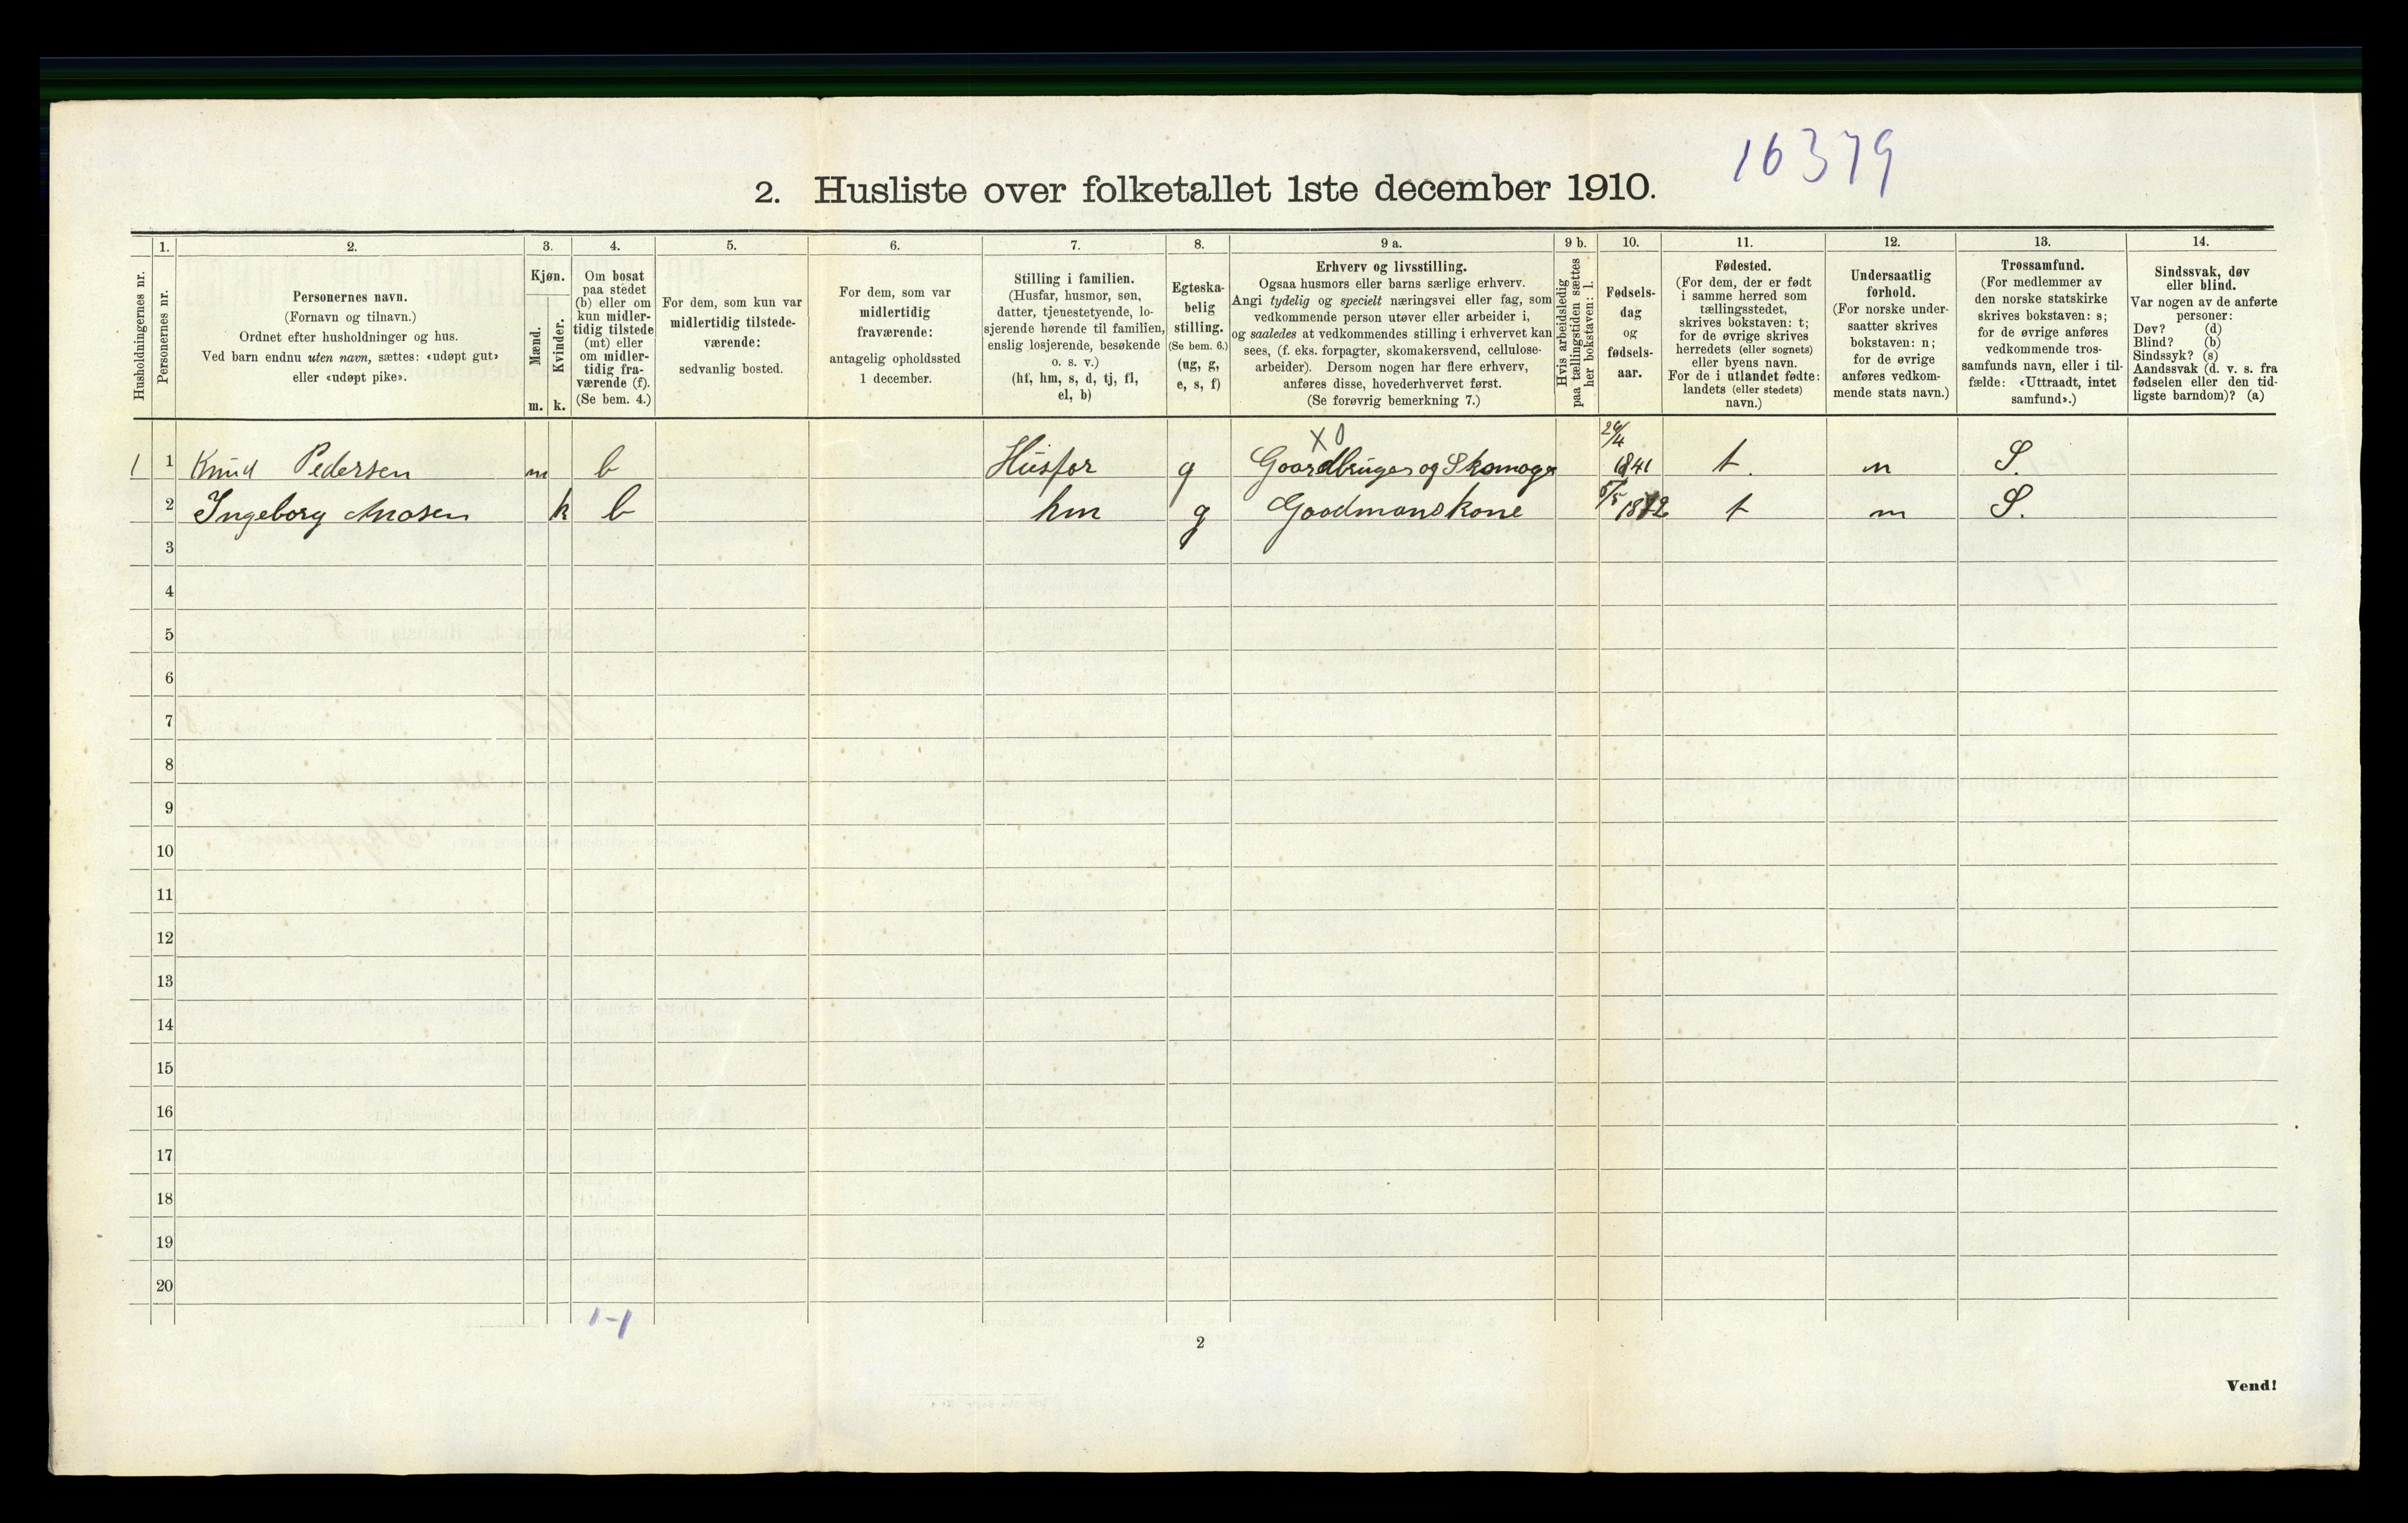 16379
2. Husliste over folketallet 1ste december 1910.
Husholdningernes nr.
1.
Personernes nr.
2.
Personernes navn.
(Fornavn og tilnavn.)
Ordnet efter husholdninger og hus.
Ved barn endnu uten navn, sættes: «udøpt gut»
eller «udøpt pike».
3.
Kjøn.
Mænd.
Kvinder.
m. k.
4.
Om bosat
paa stedet
(b) eller om
kun midler-
tidig tilstede
(mt) eller
om midler-
tidig fra-
værende (f).
(Se bem. 4.)
5.
For dem, som kun var
midlertidig tilstede-
værende:
sedvanlig bosted.
6.
For dem, som var
midlertidig
fraværende:
antagelig opholdssted
1 december.
7.
Stilling i familien.
(Husfar, husmor, søn,
datter, tjenestetyende, lo-
sjerende hørende til familien,
enslig losjerende, besøkende
o. s. v.)
(hf, hm, s, d, tj, fl,
el, b)
8.
Egteska-
belig
stilling.
(Se bem. 6.)
(ug, g,
e, s, f)
9 a.
Erhverv og livsstilling.
Ogsaa husmors eller barns særlige erhverv.
Angi tydelig og specielt næringsvei eller fag, som
vedkommende person utøver eller arbeider i,
og saaledes at vedkommendes stilling i erhvervet kan
sees, (f. eks. forpagter, skomakersvend, cellulose-
arbeider). Dersom nogen har flere erhverv,
anføres disse, hovederhvervet først.
(Se forøvrig bemerkning 7.)
9 b.
Hvis arbeidsledig
paa tællingstiden sættes
her bokstaven: l.
10.
Fødsels-
dag
og
fødsels-
aar.
11.
Fødested.
(For dem, der er født
i samme herred som
tællingsstedet,
skrives bokstaven: t;
for de øvrige skrives
herredets (eller sognets)
eller byens navn.
For de i utlandet fødte:
landets (eller stedets)
navn.)
12.
Undersaatlig
forhold.
(For norske under-
saatter skrives
bokstaven: n;
for de øvrige
anføres vedkom-
mende stats navn.)
13.
Trossamfund.
(For medlemmer av
den norske statskirke
skrives bokstaven: s;
for de øvrige anføres
vedkommende tros-
samfunds navn, eller i til-
fælde: «Uttraadt, intet
samfund».)
14.
Sindssvak, døv
eller blind.
Var nogen av de anførte
personer:
Døv? (d)
Blind? (b)
Sindssyk? (s)
Aandssvak (d. v. s. fra
fødselen eller den tid-
ligste barndom)? (a)
X 0
1 1 Knud Pedersen m b Husfar g Gaardbruger og Skomager 1841 t. n S.
2 Ingeborg k b hm g Gaadmands kone 5/5 t n S.
3
4
5
6
7
8
9
10
11
12
13
14
15
16
17
18
19
20
1-1
2
Vend!